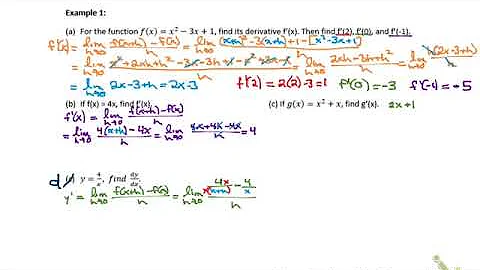 Example 1:
(a) For the function f(x) = x² − 3x + 1, find its derivative f'(x). Then find f'(2), f'(0), and f'(-1).
f'(x) = lim h→0 f(x+h) − f(x) / h = lim h→0 (x+h)² − 3(x+h) + 1 − [x² − 3x + 1] / h
= lim h→0 x² + 2xh + h² − 3x − 3h + 1 − x² + 3x − 1 / h = lim h→0 2xh − 3h + h² / h = lim h→0 h(2x − 3 + h) / h
= lim h→0 2x − 3 + h = 2x − 3 f'(2) = 2(2) − 3 = 1 f'(0) = −3 f'(-1) = −5
(b) If f(x) = 4x, find f'(x). (c) If g(x) = x² + x, find g'(x). 2x + 1
f'(x) = lim h→0 f(x+h) − f(x) / h
= lim h→0 4(x+h) − 4x / h = lim h→0 4x + 4h − 4x / h = 4
d) y = 4/x, find dy/dx.
y' = lim h→0 f(x+h) − f(x) / h = lim h→0 4x / x(x+h) − 4/x / h